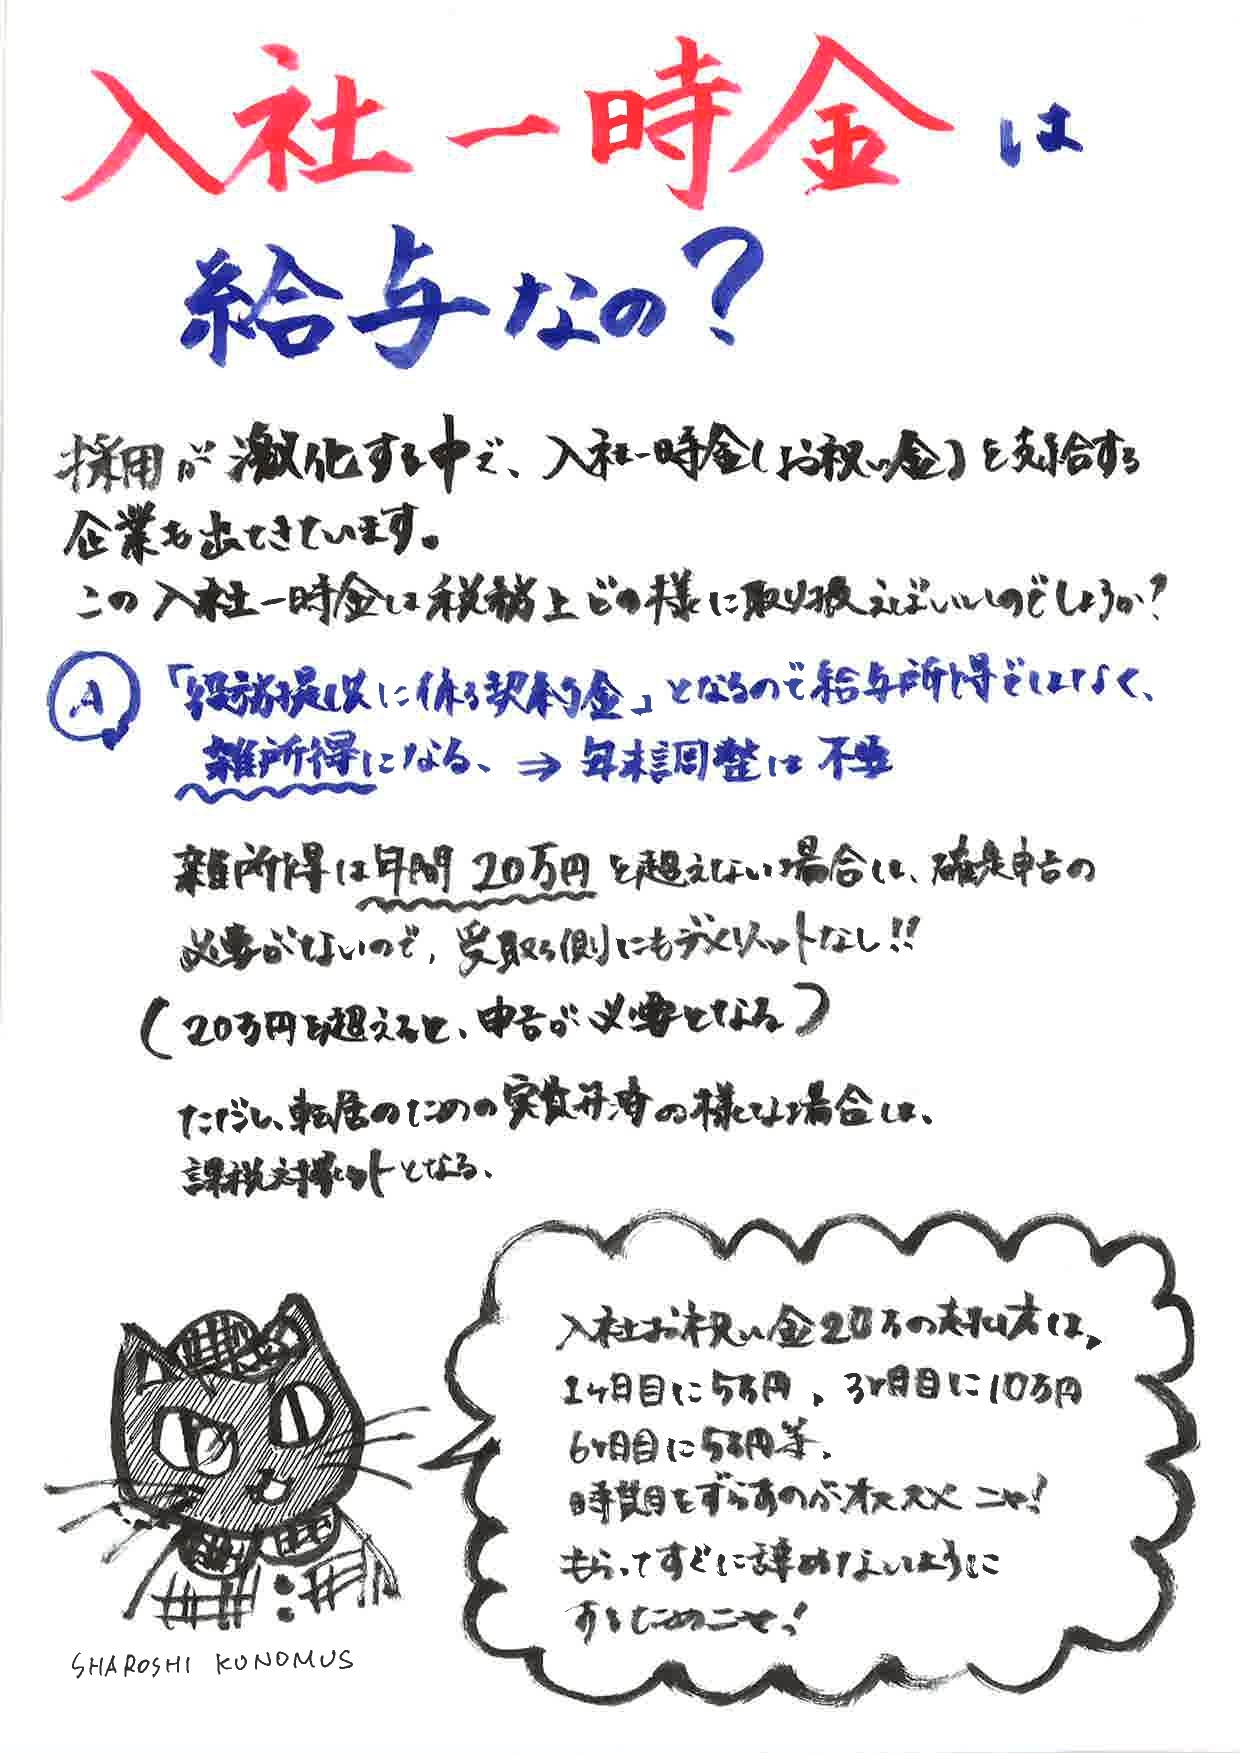 入社一時金は
給与なの？
採用が激化する中で、入社一時金（お祝い金）を支給する
企業も出てきています。
この入社一時金は税務上どの様に取り扱えばいいのでしょうか？
A 「役務提供に係る契約金」となるので給与所得ではなく、
雑所得になる、⇒ 年末調整は不要
雑所得は年間20万円を超えない場合は、確定申告の
必要がないので、受取る側にもデメリットなし!!
（20万円を超えると、申告が必要となる）
ただし、転居のための実費弁済の様な場合は、
課税対象外となる、
入社お祝い金20万の支払方は、
1ヶ月目に5万円、3ヶ月目に10万円
6ヶ月目に5万円等、
時期をずらすのがオススメニャ！
もらってすぐに辞めないように
するためニャ！
SHAROSHI KONOMUS